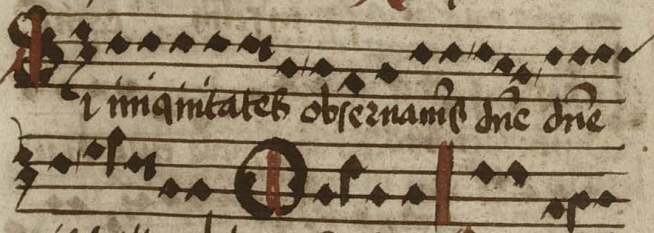 Si iniquitates obseruaueris dn̄e dn̄e